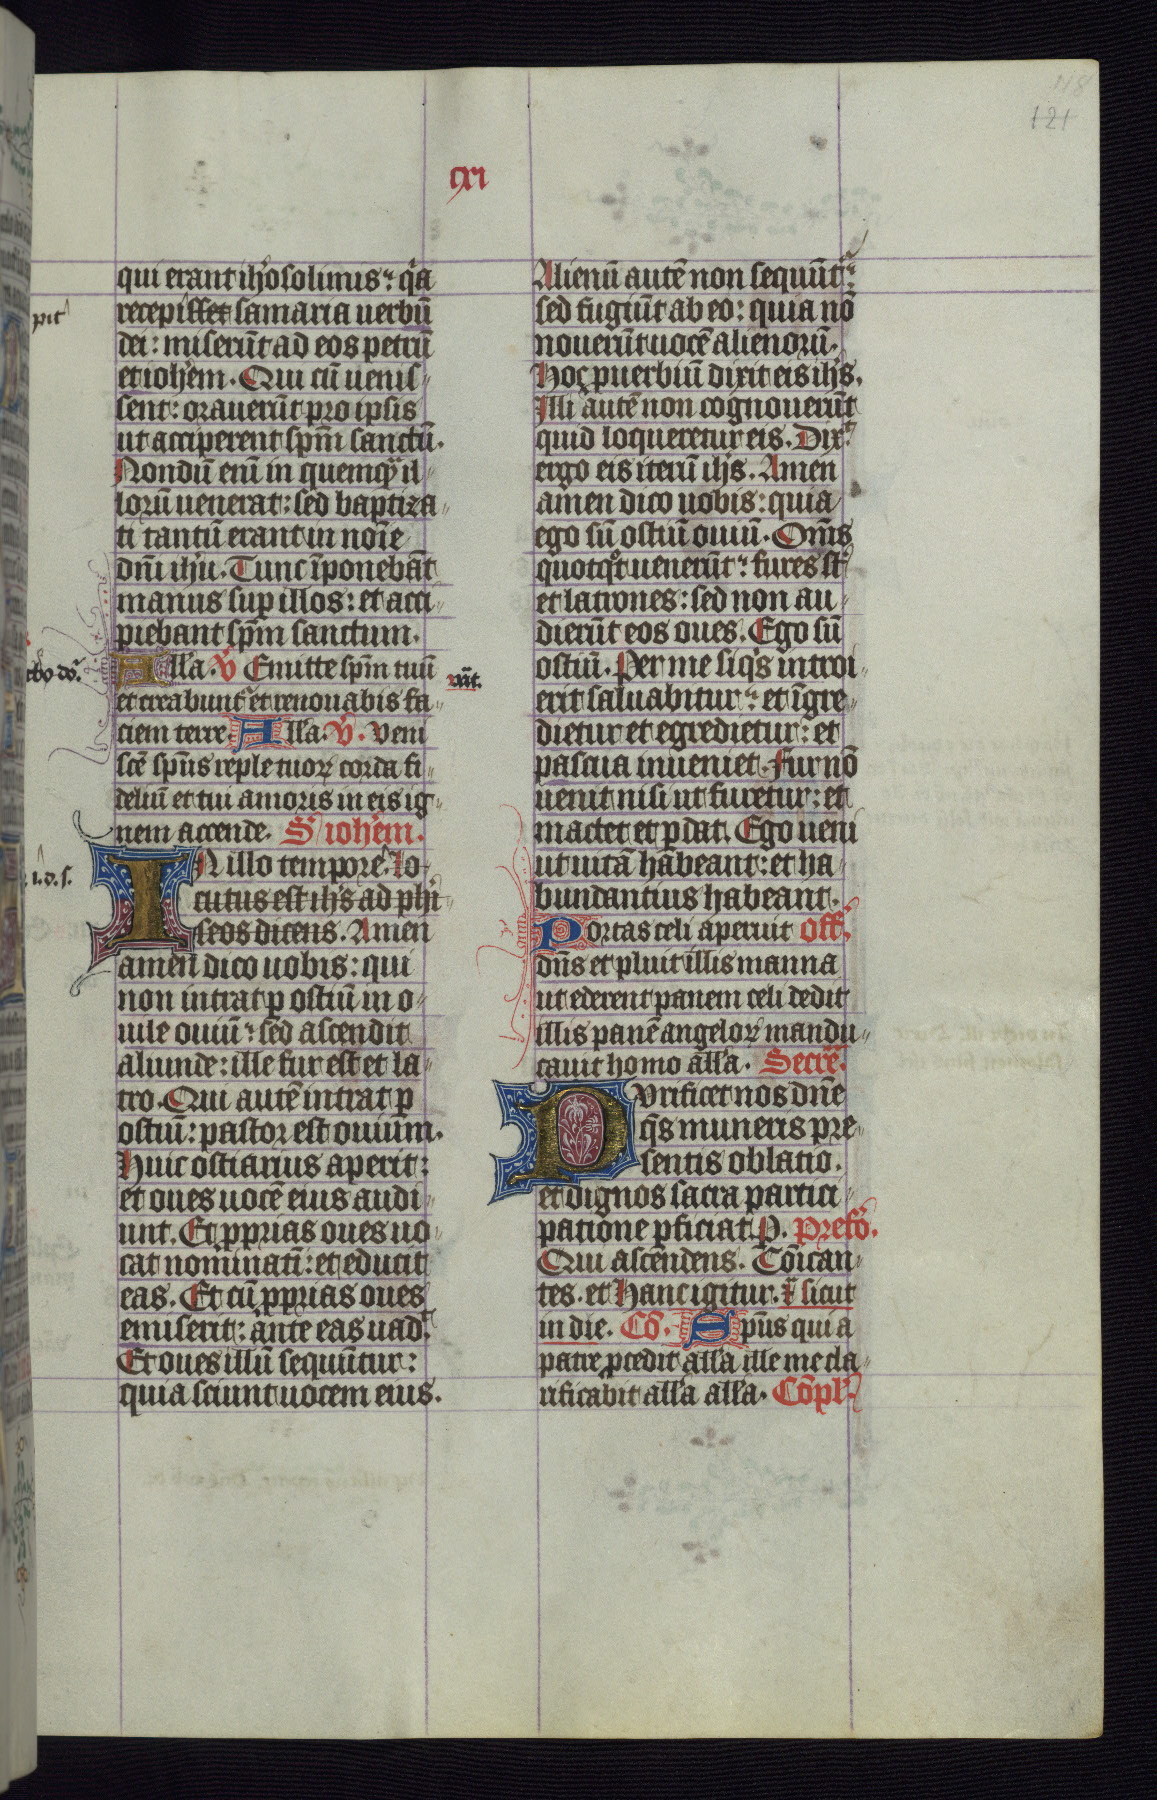 118
121
cxi
qui erant ih'osolimis: q̄a
recepisset samaria uerbū
dei: miserūt ad eos petrū
et ioh'em. Qui cū uenis
sent: orauerūt pro ipsis
ut acciperent sp̄m sanctū.
Nondū enī in quemq̄ il
lorū uenerat: sed baptiza
ti tantū erant in noīe
dn̄i ih'u. Tunc īponebāt
manus sup illos: et acci
piebant sp̄m sanctum.
All'a. V̄ Emitte sp̄m tuū
et creabunt' et renouabis fa
ciem terre. All'a. V̄. Veni
sc̄e sp̄us reple tuoꝝ corda fi
deliū et tui amoris in eis ig
nem accende. S' ioh'em.
IN illo tempore. Lo
cutus est ih's ad phi
seos dicens. Amen
amen dico uobis: qui
non intrat p ostiū in o
uile ouiū: sed ascendit
aliunde: ille fur est et la
tro. Qui autē intrat p
ostiū: pastor est ouium.
Huic ostiarius aperit:
et oues uocē eius audi
unt. Et pprias oues uo
cat nominatī: et educit
eas. Et cū pprias oues
emiserit: ante eas uad'.
Et oues illū sequūtur:
quia sciunt uocem eius.
pit
i. d. s.
Alienū autē non sequūt':
sed fugiūt ab eo: quia nō
nouerūt uocē alienorū.
Hoc puerbiū dixit eis ih's.
Illi autē non cognouerūt
quid loqueretur eis. Dix'
ergo eis iterū ih's. Amen
amen dico uobis: quia
ego sū ostiū ouiū. Om̄s
quotq̄t uenerūt: fures st̄
et latrones: sed non au
dierūt eos oues. Ego sū
ostiū. Per me siq's introi
erit saluabitur: et īgre
dietur et egredietur: et
pascua inueniet. Fur nō
uenit nisi ut furetur: et
mactet et pdat. Ego ueni
ut uitā habeant: et ha
bundantius habeant.
Portas celi aperuit off'.
dn̄s et pluit illis manna
ut ederent panem celi dedit
illis panē angeloꝝ mandu
cauit homo all'a. Secre'.
Purificet nos dn̄e
q̄s muneris pre
sentis oblatio.
et dignos sacra partici
patione pficiat. P. prefō.
Qui ascendens. Cōican
tes. et Hanc igitur. sicut
in die. Cō. Sp̄us qui a
patre pcedit all'a ille me cla
rificabit all'a all'a. Cōpl'